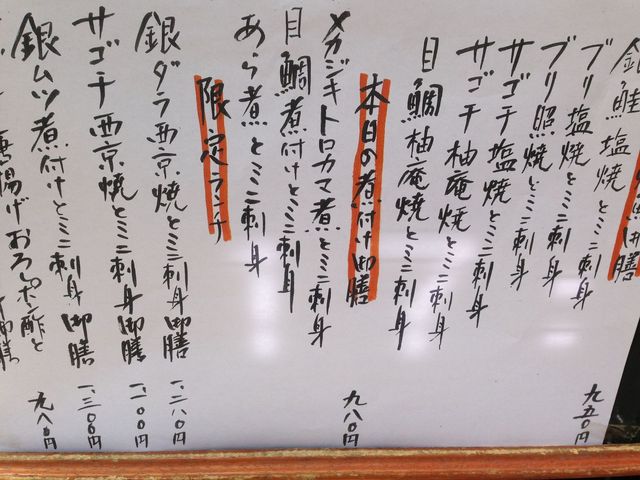 御膳
銀鮭塩焼とミニ刺身
ブリ塩焼とミニ刺身
九五〇円
ブリ照焼とミニ刺身
サゴチ塩焼とミニ刺身
サゴチ柚庵焼とミニ刺身
目鯛柚庵焼とミニ刺身
本日の煮付け御膳
九八〇円
メカジキトロカマ煮とミニ刺身
目鯛煮付けとミニ刺身
あら煮とミニ刺身
限定ランチ
銀ダラ西京焼とミニ刺身御膳 一、二八〇円
サゴチ西京焼とミニ刺身御膳 一、一〇〇円
銀ムツ煮付けとミニ刺身御膳 一、三〇〇円
揚げおろしポン酢と
九八〇円
御膳